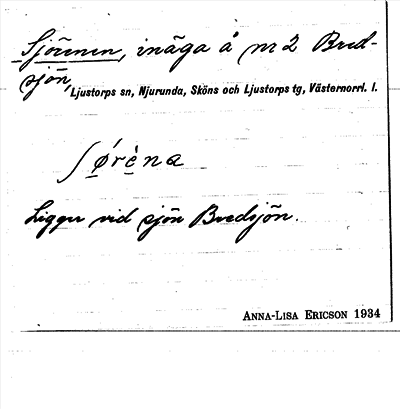 Sjörenen, inäga å nr 2 Bred-
sjön, Ljustorps sn, Njurunda, Sköns och Ljustorps tg, Västernorrl. l.
ʃø̀rèna
Ligger vid sjön Bredsjön.
ANNA-LISA ERICSON 1934